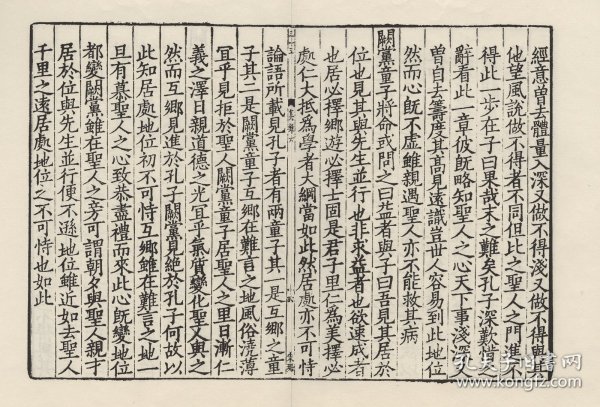 經意曽去體量入深又做不得淺又做不得與其
他望風說做不得者不同但比之聖人之門進不
得此一步在子曰果哉末之難矣孔子深歎自
辭看此一章彼既略知聖人之心天下事淺深
曽自去籌度其髙見遠識豈世人容易到此地位
然而心既不虚雖親遇聖人亦不能救其病
闕黨童子將命或問之曰益者與子曰吾見其居於
位也見其與先生並行也非求益者也欲速成者
也居必擇鄉遊必擇士固是君子里仁為美擇必
處仁大抵為學者大綱當如此然居處亦不可恃
論語所載見孔子者有兩童子其一是互鄉之童
子其二是闕黨童子互鄉在難言之地風俗澆薄
宜乎見拒於聖人闕黨童子居聖人之里日漸仁
義之澤日親道德之光宜乎氣質變化聖人與之
然而互鄉見進於孔子闕黨見絶於孔子何故以
此知居處地位初不可恃互鄉雖在難言之地一
旦有慕聖人之心致恭盡禮而來此心既變地位
都變闕黨雖在聖人之旁可謂朝夕與聖人親才
居於位與先生並行便不遜地位雖近如去聖人
千里之遠居處地位之不可恃也如此
孔夫子旧书网
www.kongfz.com